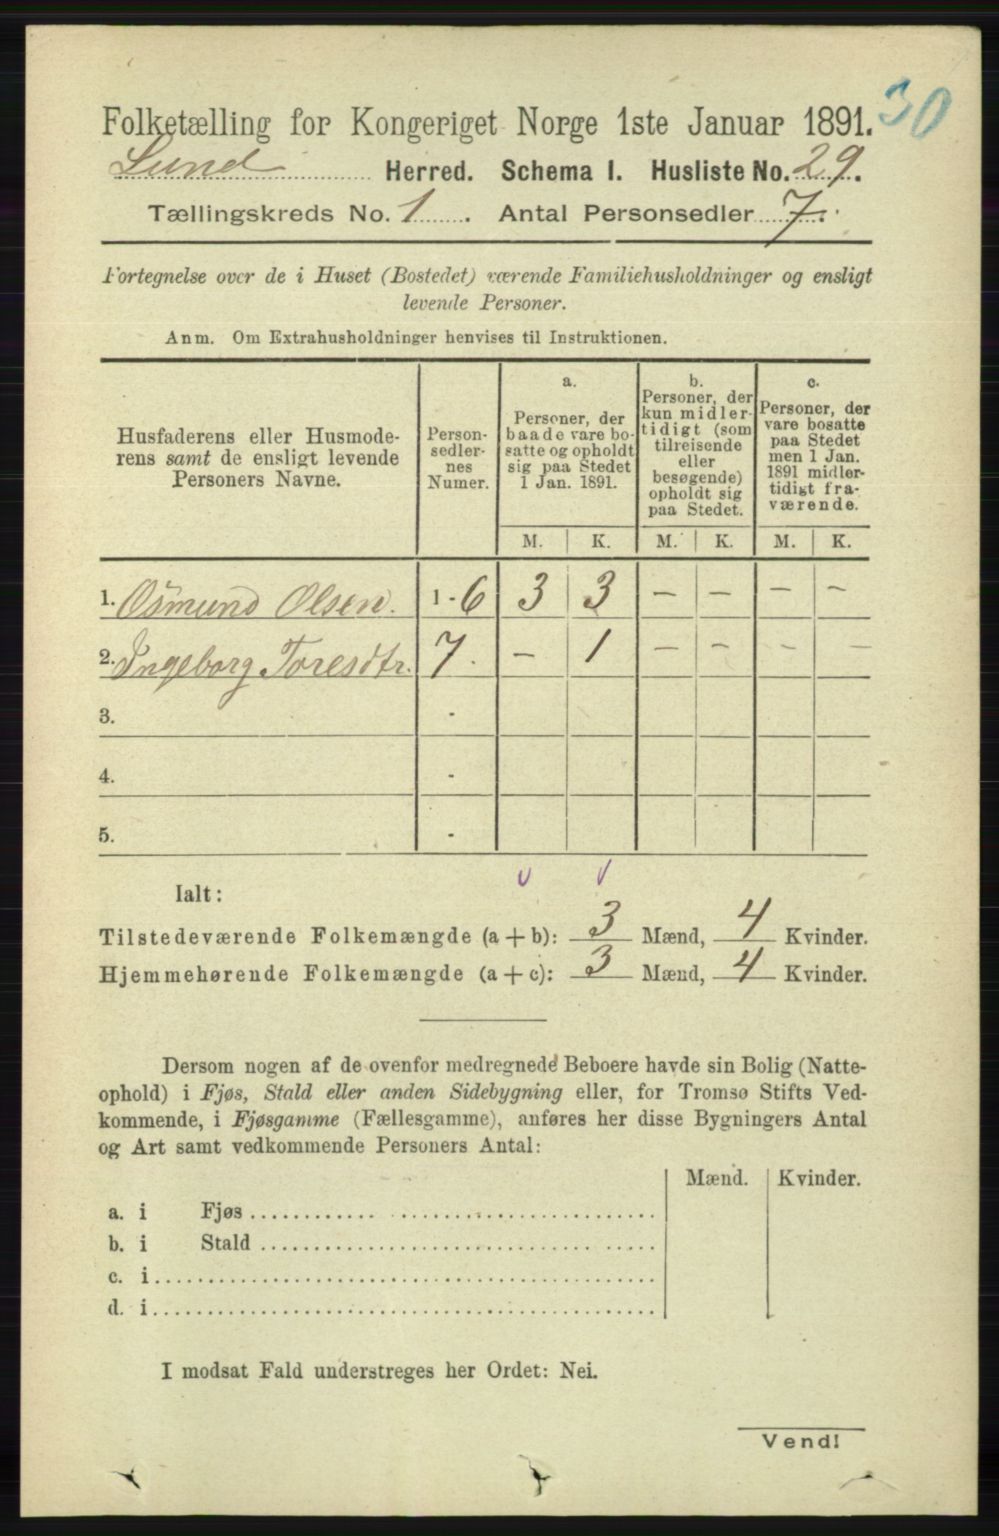 30
Folketælling for Kongeriget Norge 1ste Januar 1891.
Lund Herred. Schema I. Husliste No. 29.
Tællingskreds No. 1. Antal Personsedler 7.
Fortegnelse over de i Huset (Bostedet) værende Familiehusholdninger og ensligt
levende Personer.
Anm. Om Extrahusholdninger henvises til Instruktionen.
Husfaderens eller Husmode-
rens samt de ensligt levende
Personers Navne.
Person-
sedler-
nes
Numer.
a.
Personer, der
baade vare bo-
satte og opholdt
sig paa Stedet
1 Jan. 1891.
b.
Personer, der
kun midler-
tidigt (som
tilreisende
eller
besøgende)
opholdt sig
paa Stedet.
c.
Personer, der
vare bosatte
paa Stedet
men 1 Jan.
1891 midler-
tidigt fra-
værende.
M. K. M. K. M. K.
1. Osmund Olsen. 1-6 3 3 – – – –
2. Ingeborg Toresdtr. 7. – 1 – – – –
3. -
4. -
5. -
Ialt:
Tilstedeværende Folkemængde (a + b): 3 Mænd, 4 Kvinder.
Hjemmehørende Folkemængde (a + c): 3 Mænd, 4 Kvinder.
Dersom nogen af de ovenfor medregnede Beboere havde sin Bolig (Natte-
ophold) i Fjøs, Stald eller anden Sidebygning eller, for Tromsø Stifts Ved-
kommende, i Fjøsgamme (Fællesgamme), anføres her disse Bygningers Antal
og Art samt vedkommende Personers Antal:
Mænd. Kvinder.
a. i Fjøs
b. i Stald
c. i
d. i
I modsat Fald understreges her Ordet: Nei.
Vend!